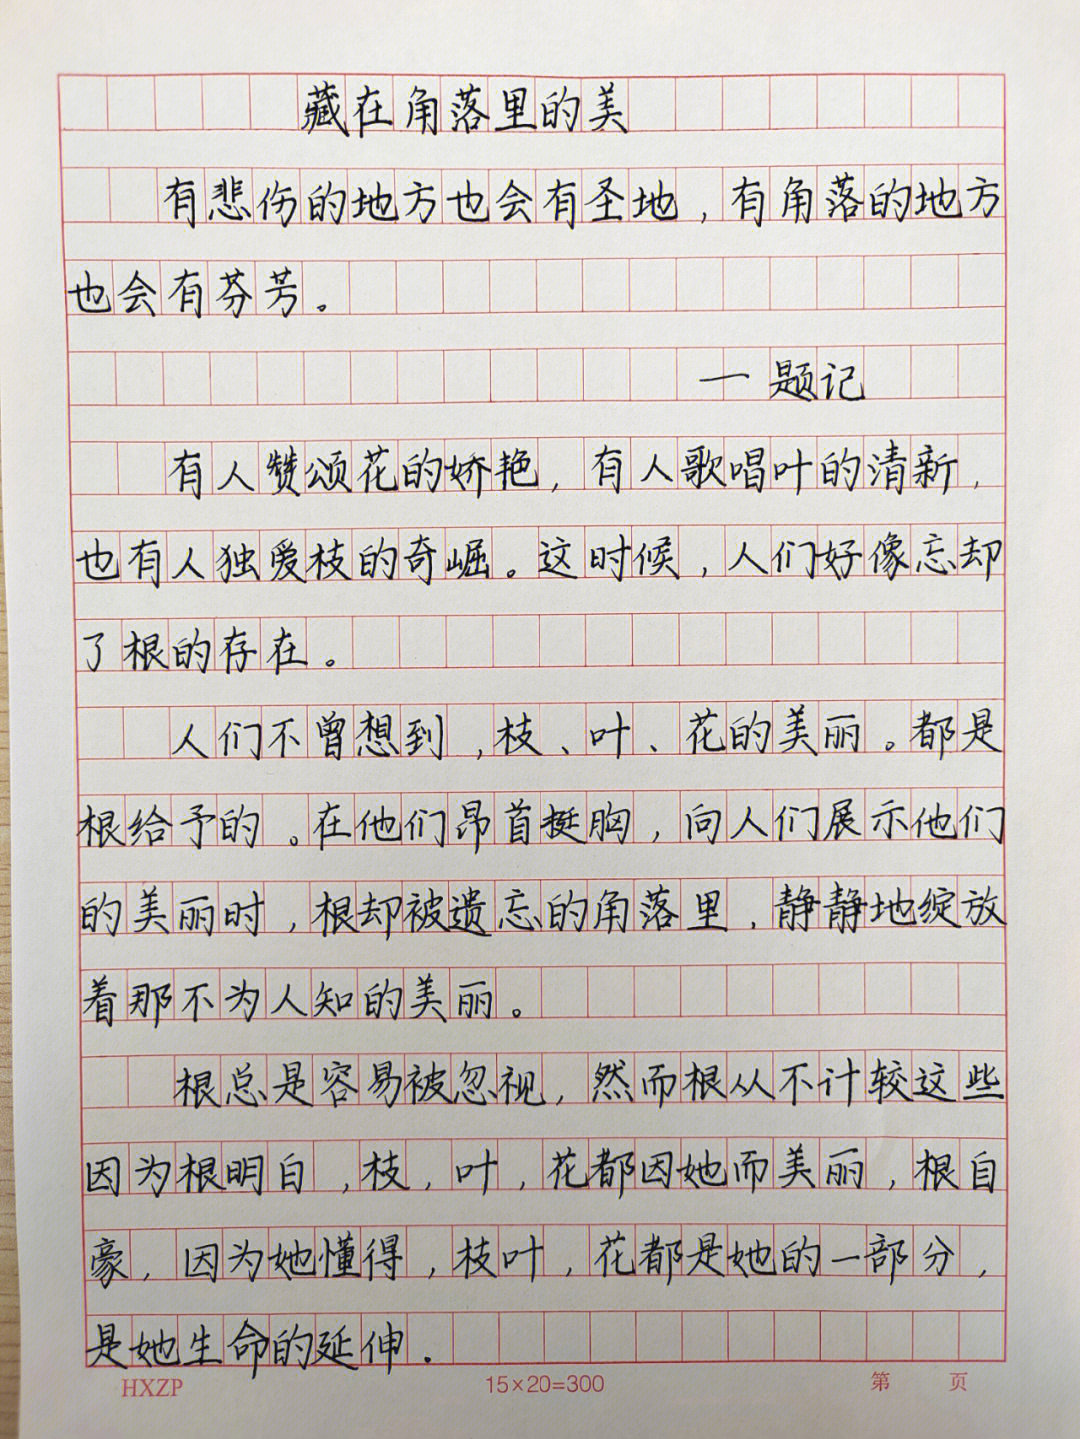 藏在角落里的美
有悲伤的地方也会有圣地，有角落的地方
也会有芬芳。
一题记
有人赞颂花的娇艳，有人歌唱叶的清新，
也有人独爱枝的奇崛。这时候，人们好像忘却
了根的存在。
人们不曾想到，枝、叶、花的美丽。都是
根给予的。在他们昂首挺胸，向人们展示他们
的美丽时，根却被遗忘的角落里，静静地绽放
着那不为人知的美丽。
根总是容易被忽视，然而根从不计较这些
因为根明白，枝，叶，花都因她而美丽，根自
豪，因为她懂得，枝叶，花都是她的一部分，
是她生命的延伸.
HXZP 15×20=300 第 页